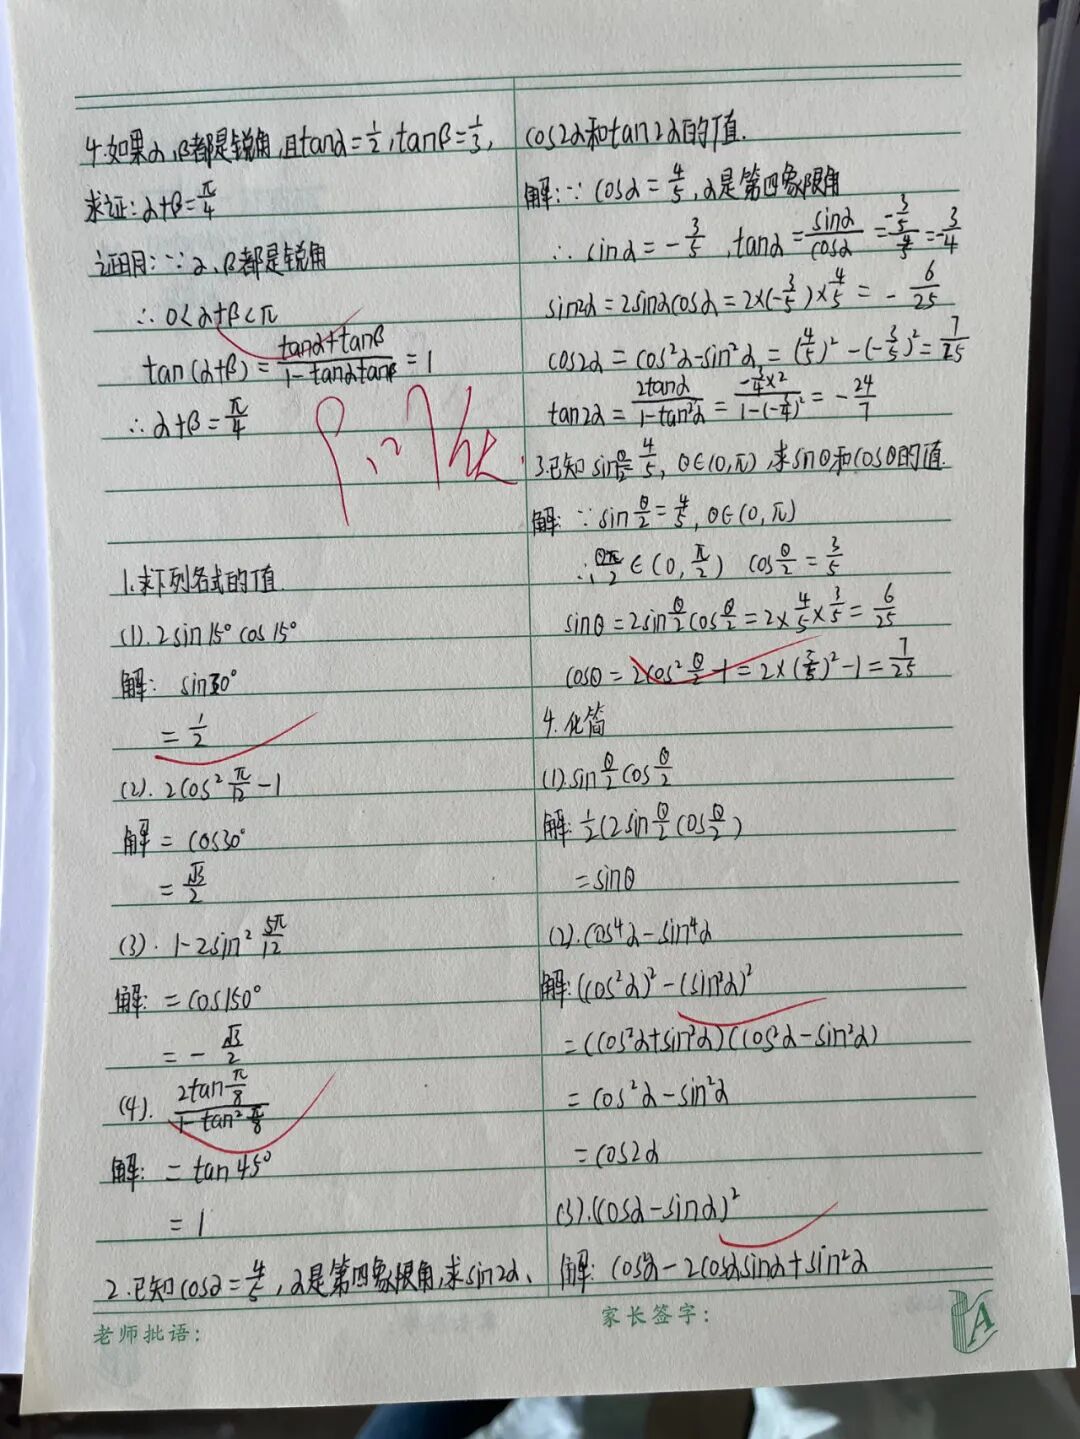 4.如果α,β都是锐角,且tanα=1/2,tanβ=1/3,
求证:α+β=π/4
证明:∵α、β都是锐角
∴0<α+β<π
tan(α+β)=(tanα+tanβ)/(1-tanαtanβ)=1
∴α+β=π/4
1.求下列各式的值.
(1).2sin15°cos15°
解: sin30°
=1/2
(2).2cos²π/12-1
解=cos30°
=√3/2
(3).1-2sin²5π/12
解:=cos150°
=-√3/2
(4).(2tanπ/8)/(1-tan²π/8)
解:=tan45°
=1
2.已知cosα=4/5,α是第四象限角,求sin2α、
cos2α和tan2α的值.
解:∵cosα=4/5,α是第四象限角
∴sinα=-3/5,tanα=sinα/cosα=(-3/5)/(4/5)=-3/4
sin2α=2sinαcosα=2×(-3/5)×4/5=-6/25
cos2α=cos²α-sin²α=(4/5)²-(-3/5)²=7/25
tan2α=2tanα/(1-tan²α)=(-3/4×2)/(1-(-3/4)²)=-24/7
3.已知sinθ/2=4/5,θ∈(0,π),求sinθ和cosθ的值.
解:∵sinθ/2=4/5,θ∈(0,π)
∴θ/2∈(0,π/2) cosθ/2=3/5
sinθ=2sinθ/2cosθ/2=2×4/5×3/5=6/25
cosθ=2cos²θ/2-1=2×(3/5)²-1=7/25
4.化简
(1).sinθ/2cosθ/2
解:1/2(2sinθ/2cosθ/2)
=sinθ
(2).cos⁴α-sin⁴α
解:(cos²α)²-(sin²α)²
=(cos²α+sin²α)(cos²α-sin²α)
=cos²α-sin²α
=cos2α
(3).(cosα-sinα)²
解:cos²α-2cosαsinα+sin²α
老师批语:
家长签字:
A